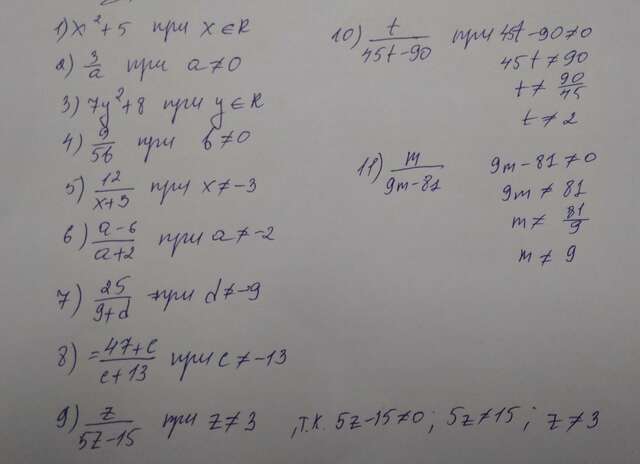 1) x²+5 при x ∈ R
2) 3/a при a ≠ 0
3) 7y²+8 при y ∈ R
4) 9/5b при b ≠ 0
5) 12/x+3 при x ≠ -3
6) a-6/a+2 при a ≠ -2
7) 25/9+d при d ≠ -9
8) = 47+c/c+13 при c ≠ -13
9) z/5z-15 при z ≠ 3 , т.к. 5z-15≠0 ; 5z≠15 ; z ≠ 3
10) t/45t-90 при 45t-90≠0
45t ≠ 90
t ≠ 90/45
t ≠ 2
11) m/9m-81 9m-81 ≠ 0
9m ≠ 81
m ≠ 81/9
m ≠ 9